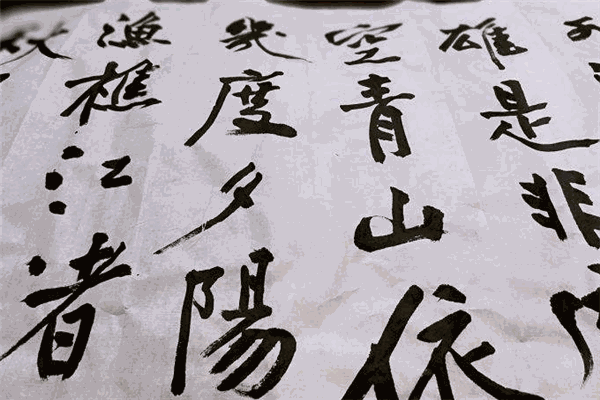 雄是非
空青山依
幾度夕陽
漁樵江渚
秋